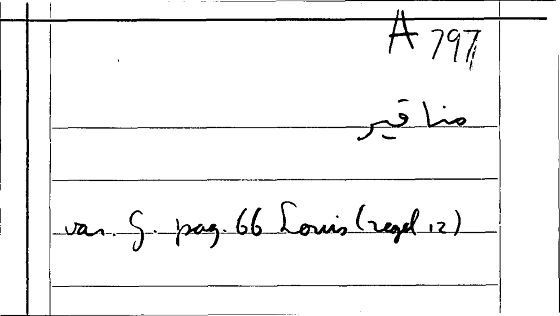 A 797
مناقير
van. G. pag. 66 Louis (regel 12)